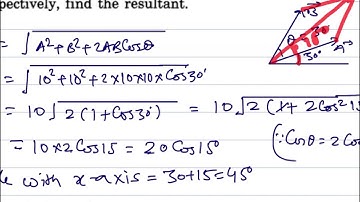 pectively, find the resultant.
= √A²+B²+2ABCosθ
= √10²+10²+2×10×10×Cos30°
= 10√2(1+Cos30°) = 10√2(1+2Cos²15
= 10×2Cos15 = 20Cos15°
(∵Cosθ=2Cos
with x-axis=30+15=45°
B
30°
A